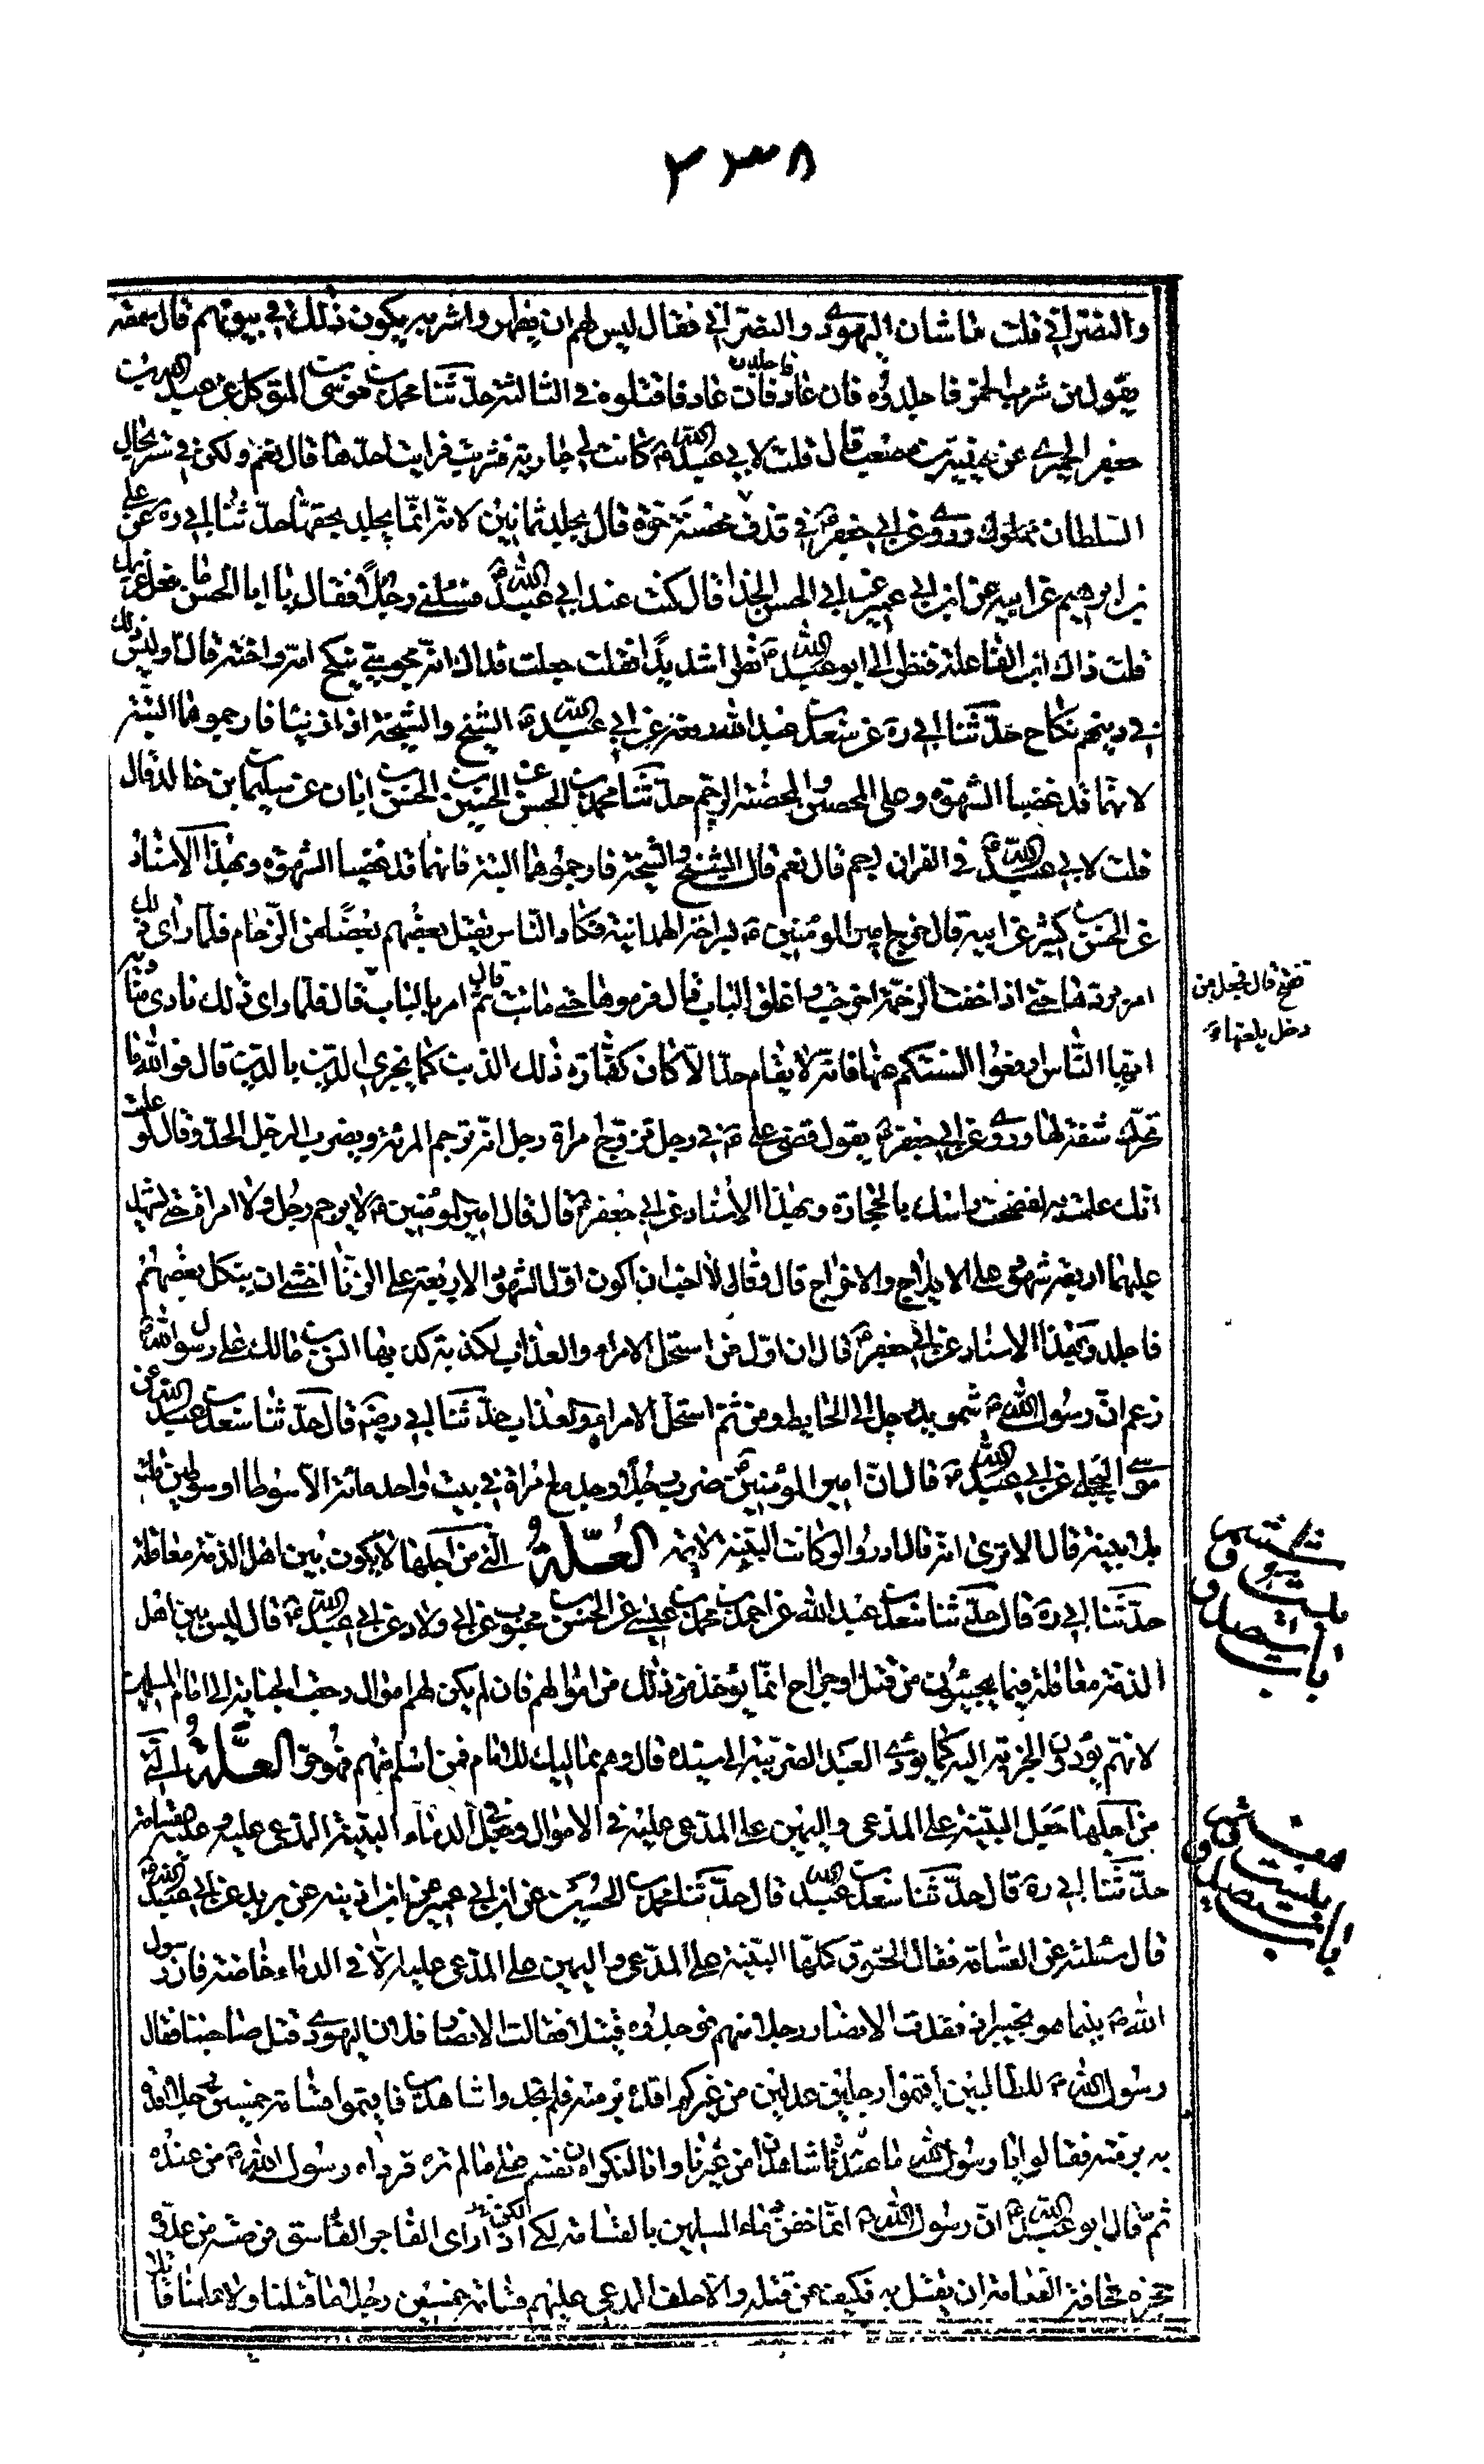 ٢٣٨
والنصراني قلت ما شان اليهودى والنصراني فقال ليس لهم ان يظهروا شربه يكون ذلك في بيوتهم قال سمعته
يقول من شرب الخمر فاجلدوه فان عاد فاجلدوه فان عاد فاقتلوه في الثالثة حدّثنا محمد بن موسى المتوكل عن عبد الله بن
جعفر الحميري عن قال قلت لابي عبد الله ع كانت لي جارية فزنت احدها قال نعم ولكن في ستر لحال
السلطان وروى عن ابي جعفر ع في قذف محصنة حرة قال يجلد ثمانين لانه انما يجلد بحقها حدّثنا ابي ره عن علي
بن ابرهيم عن ابيه عن ابن ابي عمير عن ابي الحسن الحذا قال كنت عند ابي عبد الله ع فسئلني رجل فقال يا ابا الحسن ما فعل غريمك
قلت ذاك ابن الفاعلة فنظر الى ابو عبد الله ع نظرا شديدا فقلت جعلت فداك انه مجوسي ينكح امه واخته قال اوليس ذلك
في دينهم نكاح حدّثنا ابي ره عن سعد بن عبد الله رفعه عن ابي عبد الله ع الشيخ والشيخة اذا زنيا فارجموهما البتة
لانهما قد قضيا الشهوة وعلى المحصن والمحصنة الرجم حدّثنا محمد بن الحسن عن الحسين بن الحسن بن ابان عن سليمان بن خالد قال
قلت لابي عبد الله ع في القران رجم قال نعم قال الشيخ والشيخة فارجموهما البتة فانهما قد قضيا الشهوة وبهذا الاسناد
عن الحسن بن كثير عن ابيه قال خرج امير المؤمنين ع بسراحة الهمدانية فكاد الناس يقتل بعضهم بعضا من الزحام فلما راى ذلك
امر بردها حتى اذا خفت الزحمة اخرجت واغلق الباب قال فرموها حتى ماتت قال ثم امر بالباب قال فلما راى ذلك نادى مناديه
ايها الناس ارفعوا السنتكم عنها فانه لا يقام حد الا كان كفارة ذلك الذنب كما يجزى الدين بالدين قال فوالله ما
تحركت شفة لها وروى عن ابي جعفر ع يقول قضى علي ع في رجل تزوج امراة رجل انه ترجم المرئة ويضرب الرجل الحد وقال لو علمت
انك علمت به لفضخت راسك بالحجارة وبهذا الاسناد عن ابي جعفر ع قال قال امير المؤمنين ع لا يرجم رجل ولا امراة حتى يشهد
عليهما اربعة شهود على الايلاج والاخراج قال وقال لا احب ان اكون اول الشهود الاربعة على الزنا اخشى ان ينكل بعضهم
فاجلد وبهذا الاسناد عن ابي جعفر ع قال ان اول من استحل الامراء والعذاب لكذبة كذبها انس بن مالك على رسول الله ص
زعم ان رسول الله ص سمر يد رجل الى الحايط ومن ثم استحل الامراء العذاب حدّثنا ابي رضه قال حدّثنا سعد بن عبد الله عن
موسى البجلي عن ابي عبد الله ع قال ان امير المؤمنين ع ضرب رجلا وجد مع امراة في بيت واحد مائة الا سوطا او سوطين قلت
بلا بينة قال الا ترى انه قال ادرؤا لو كانت البينة لاتمه العلة التي من اجلها لا يكون بين اهل الذمة معاقلة
حدّثنا ابي ره قال حدّثنا سعد بن عبد الله عن احمد بن محمد بن عيسى عن الحسن بن محبوب عن ابي ولاد عن ابي عبد الله ع قال ليس بين اهل
الذمة معاقلة فيما يجنون من قتل او جراح انما يؤخذ من ذلك من اموالهم فان لم يكن لهم اموال رجعت الجناية الى امام المسلمين
لانهم يؤدون الجزية اليه كما يؤدى العبد الضريبة الى سيده قال وهم مماليك للامام فمن اسلم منهم فهو حر العلة التي
من اجلها جعل البينة على المدعى واليمين على المدعى عليه في الاموال وجعل في الدماء البينة المدعى عليه
حدّثنا ابي ره قال حدّثنا سعد بن عبد الله قال حدّثنا محمد بن الحسين عن ابن ابي عمير عن ابن اذينه عن بريد عن ابي عبد الله ع
قال سئلته عن القسامة فقال الحقوق كلها البينة على المدعى واليمين على المدعى عليه الا في الدماء خاصة فان رسول
الله ص بينما هو بخيبر اذ فقدت الانصار رجلا منهم فوجدوه قتيلا فقالت الانصار فلان اليهودى قتل صاحبنا فقال
رسول الله ص للطالبين اقيموا رجلين عدلين من غيركم اقده برمته فلم يجدوا شاهدين فاقيموا قسامة خمسين رجلا اقده
به برمته فقالوا يا رسول الله ما عندنا شاهدان من غيرنا وانا لنكره ان نقسم على ما لم نره فوداه رسول الله ص من عنده
ثم قال ابو عبد الله ع ان رسول الله ص انما حقن دماء المسلمين بالقسامة لكى اذا راى الفاجر الفاسق فرصة من عدوه
حجزه مخافة القسامة ان يقتل به فكيف عن قتله والا حلف المدعى عليهم قسامة خمسين رجلا ما قتلنا ولا علمنا قاتلا
نسخ قال فجعل من
دخل يلعنها
باب
باب